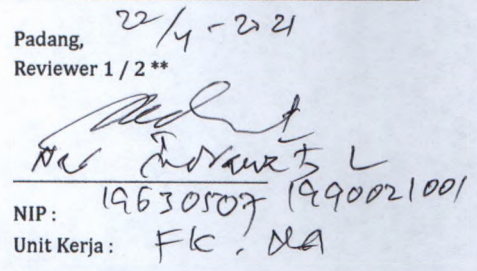 Padang, 22/4 - 2021
Reviewer 1 / 2 **
Nur Indrawati L
NIP : 19630507 1990021001
Unit Kerja : FK. UNA